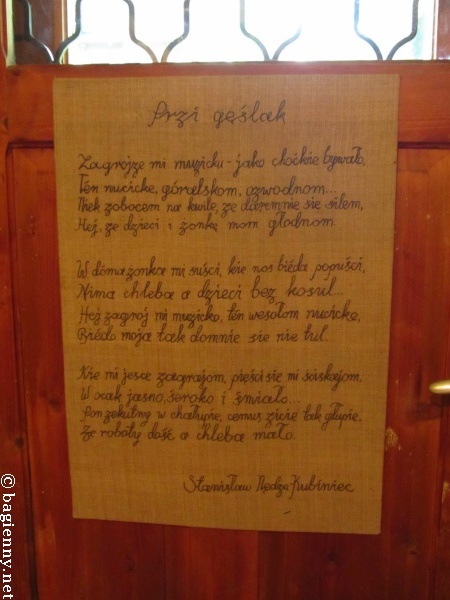 Przi gęślak
Zagrojże mi muzicku - jako choćkie bywało,
Tén nucicke, górzelskom, ozwodnom...
Niek zobocem na kwile, ze daremnie sie silem,
Hej, ze dzieci i zonke mom głodnom.
W doma zonka mi suści, kie nos biéda popuści,
Nima chleba a dzieci bez kosul...
Hej zagroj mi muzicko, tén wesołom nucicke,
Biédo moja tak domnie sie nie tul.
Kie mi jesce zagrajom, pięści sie mi ściskajom,
W ocak jasno, seroko i śmiało...
Pon zekutny w chałupie, cemus zicie tak głupie,
Ze roboty dość a chleba mało.
Stanisław Nędza Kubiniec
© bagienny.net